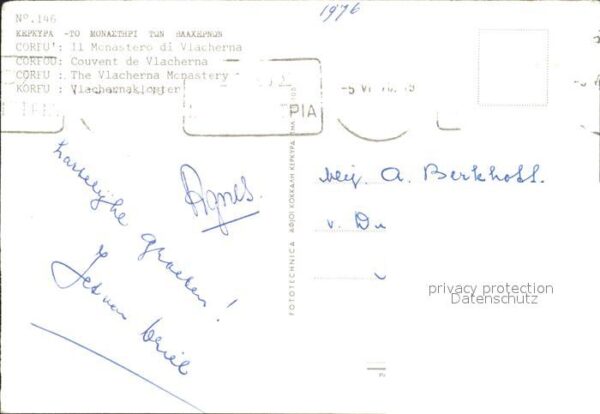 1976
Nº.146
ΚΕΡΚΥΡΑ -ΤΟ ΜΟΝΑΣΤΗΡΙ ΤΩΝ ΒΛΑΧΕΡΝΩΝ
CORFU': Il Monastero di Vlacherna
CORFOU: Couvent de Vlacherna
CORFU : The Vlacherna Monastery
KORFU : Vlachernakloster
PIA
-5 VI
hartelijke
groeten!
Agnes.
Jes van
Mej. A. Berkhoff.
v. Du
FOTOTECHNICA ΑΦΙΟΙ ΚΟΚΚΑΛΗ ΚΕΡΚΥΡΑ
privacy protection
Datenschutz